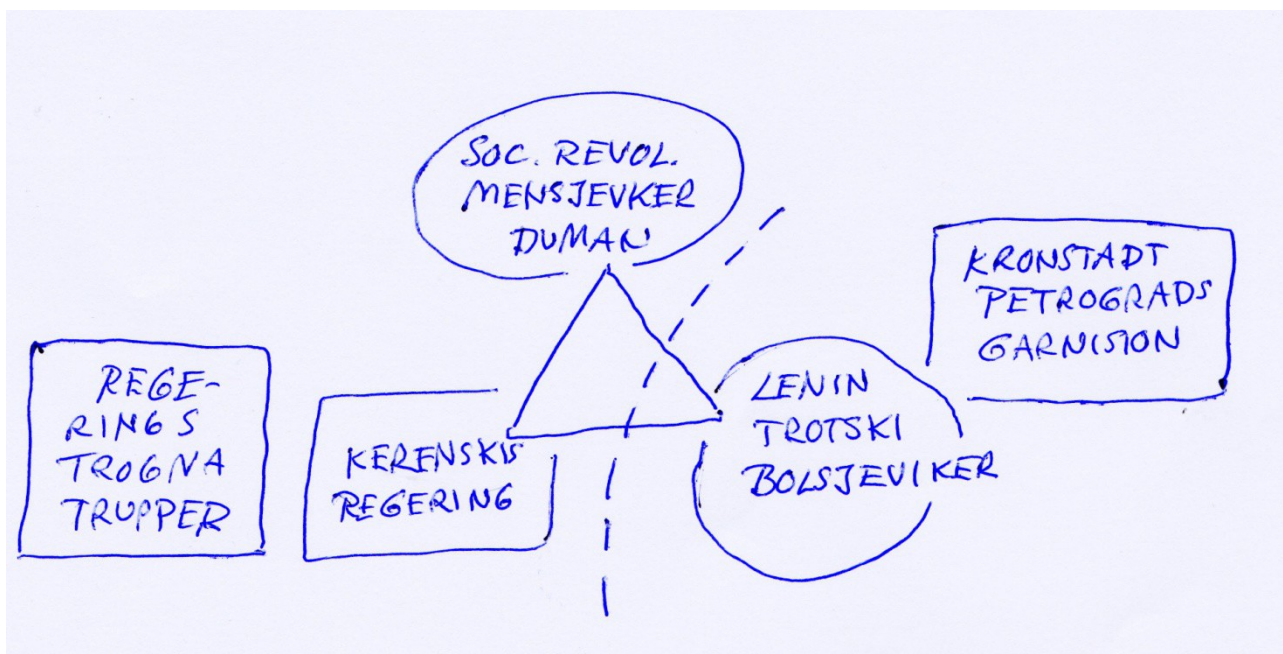 SOC. REVOL.
MENSJEVKER
DUMAN
KRONSTADT
PETROGRADS
GARNISION
REGE-
RINGS
TROGNA
TRUPPER
KERENSKIS
REGERING
LENIN
TROTSKI
BOLSJEVIKER